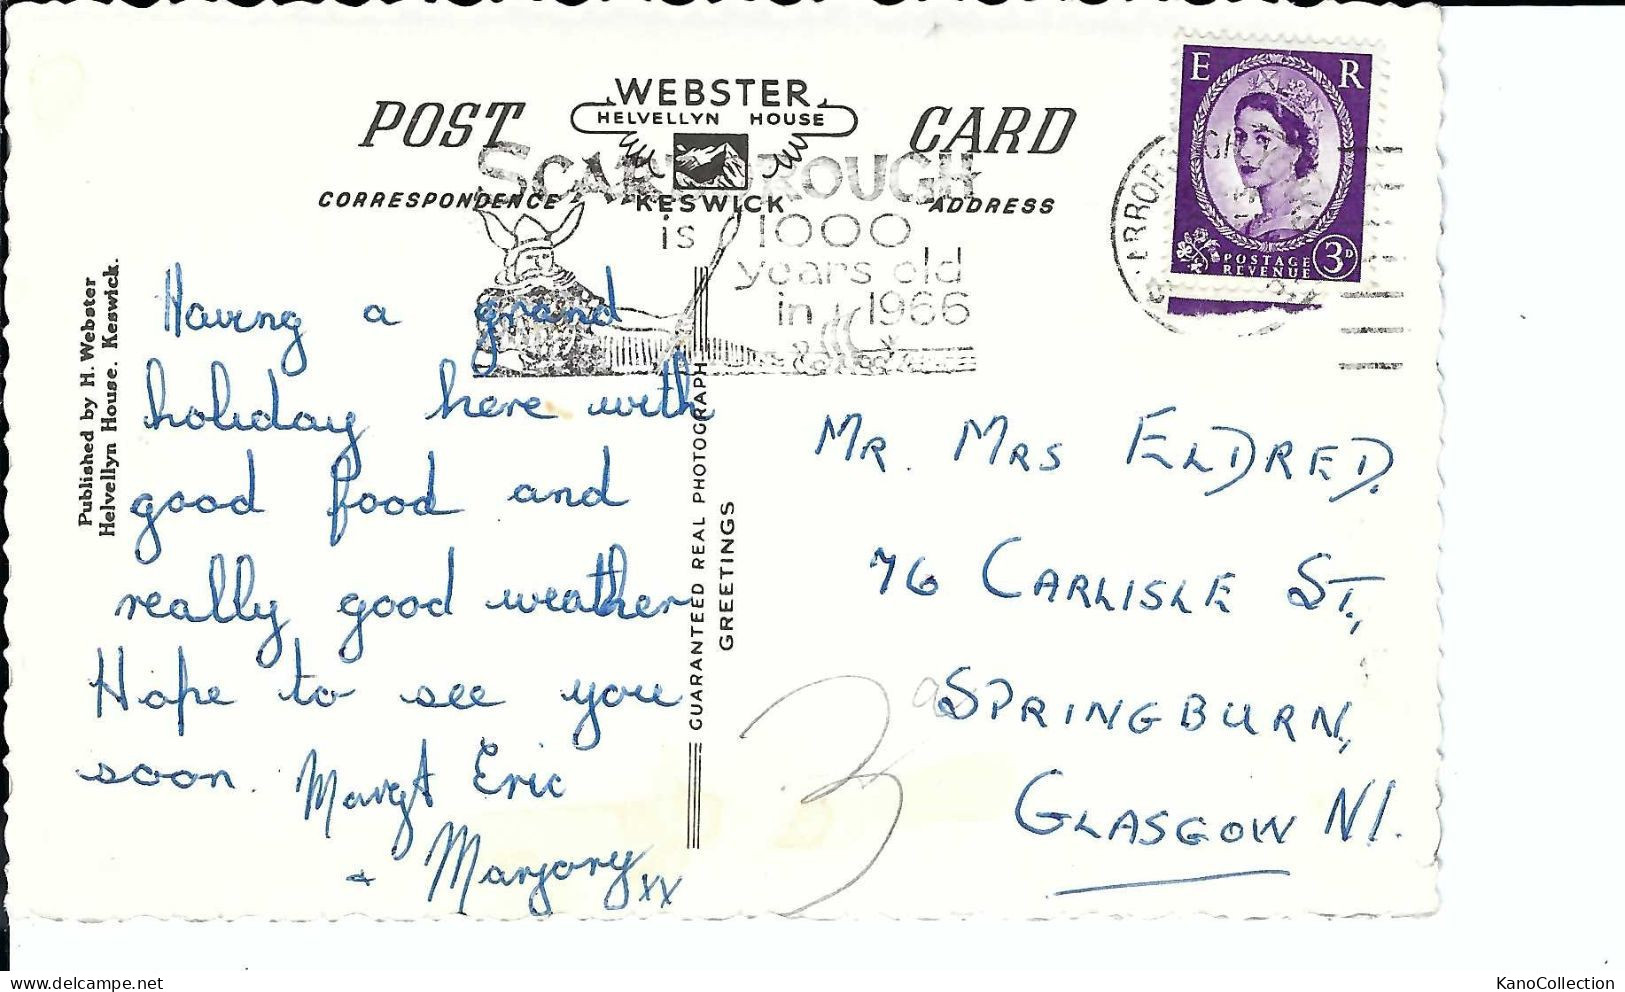 POST CARD
WEBSTER
HELVELLYN HOUSE
KESWICK
CORRESPONDENCE
ADDRESS
SCARBOROUGH
is 1000
years old
in 1966
E R
POSTAGE
REVENUE
3D
Published by H. Webster
Helvellyn House. Keswick.
Having a grand
holiday here with
good food and
really good weather
Hope to see you
soon. Margt Eric
+ Marjory xx
GUARANTEED REAL PHOTOGRAPH
GREETINGS
MR. MRS ELDRED.
76 CARLISLE ST.,
SPRINGBURN,
GLASGOW N1.
KanoCollection